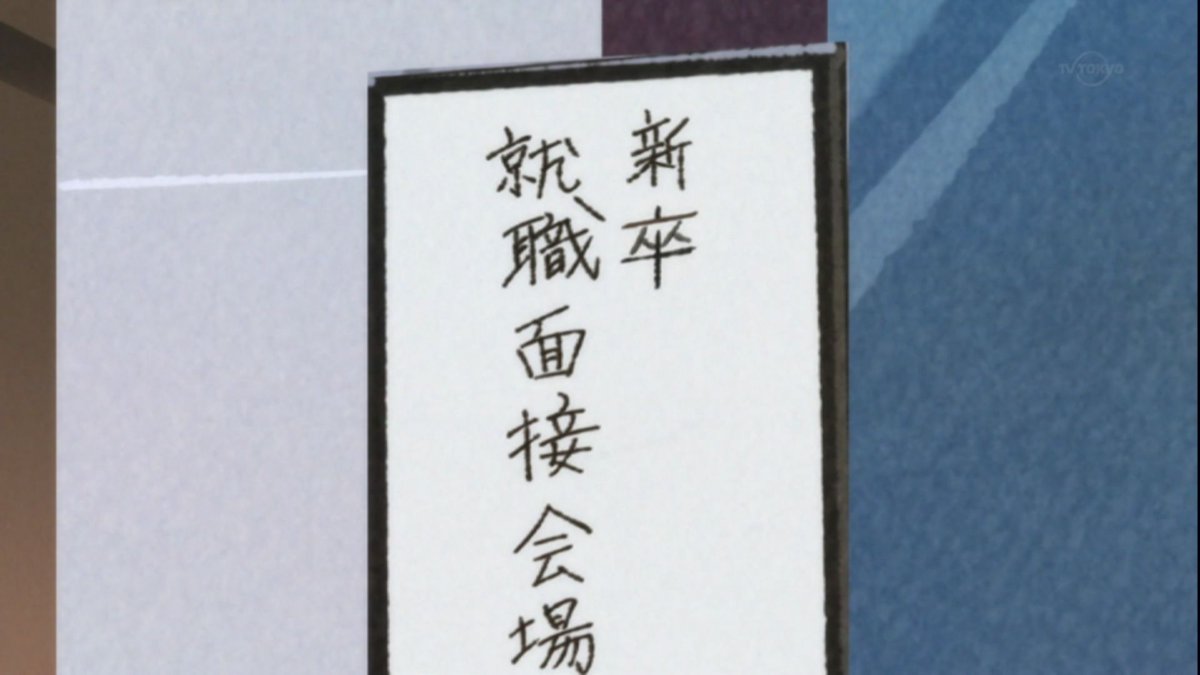 新卒
就職面接会場
TV TOKYO